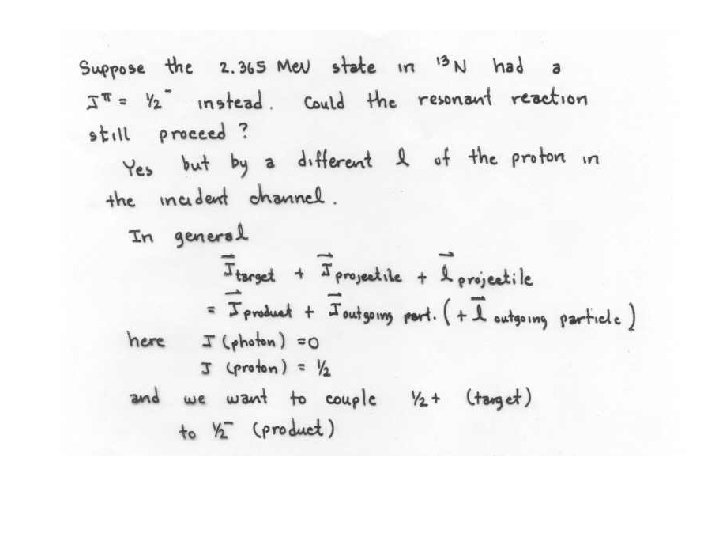 Suppose the 2.365 MeV state in ¹³N had a
Jπ = ½⁻ instead. Could the resonant reaction
still proceed ?
Yes but by a different l of the proton in
the incident channel.
In general
J⃗ target + J⃗ projectile + l⃗ projectile
= J⃗ product + J⃗ outgoing part. (+ l⃗ outgoing particle)
here J (photon) = 0
J (proton) = ½
and we want to couple ½+ (target)
to ½⁻ (product)